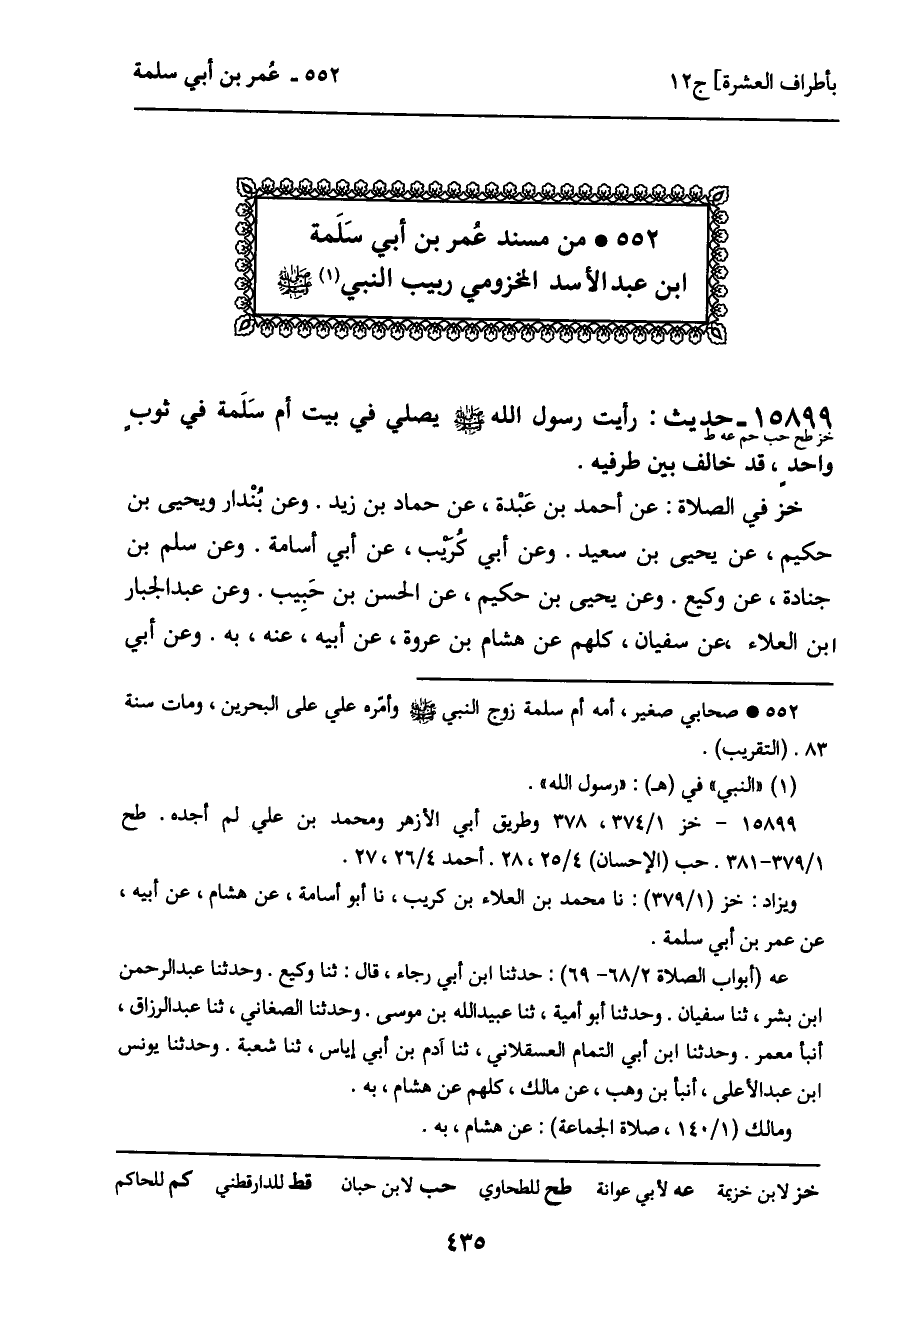 بأطراف العشرة] ج١٢ ٥٥٢ ـ عُمر بن أبي سلمة
٥٥٢ ● من مسند عُمر بن أبي سَلَمة
ابن عبدالأسد المخزومي ربيب النبي(١) ﷺ
١٥٨٩٩ـ حديث : رأيت رسول الله ﷺ يصلي في بيت أم سَلَمة في ثوبٍ
خز طح حب حم عه ط
واحدٍ ، قد خالف بين طرفيه .
خز في الصلاة : عن أحمد بن عَبْدة ، عن حماد بن زيد . وعن بُنْدار ويحيى بن
حكيم ، عن يحيى بن سعيد . وعن أبي كُرَيْب ، عن أبي أسامة . وعن سلم بن
جنادة ، عن وكيع . وعن يحيى بن حكيم ، عن الحسن بن حَبِيب . وعن عبدالجبار
ابن العلاء ،عن سفيان ، كلهم عن هشام بن عروة ، عن أبيه ، عنه ، به . وعن أبي
٥٥٢ ● صحابي صغير ، أمه أم سلمة زوج النبي ﷺ وأمّره علي على البحرين ، ومات سنة
٨٣ . (التقريب) .
(١) «النبي» في (هـ) : «رسول الله» .
١٥٨٩٩ – خز ٣٧٤/١ ، ٣٧٨ وطريق أبي الأزهر ومحمد بن علي لم أجده . طح
٣٧٩/١–٣٨١ . حب (الإحسان) ٢٥/٤ ، ٢٨ . أحمد ٢٦/٤ ، ٢٧ .
ويزاد : خز (٣٧٩/١) : نا محمد بن العلاء بن كريب ، نا أبو أسامة ، عن هشام ، عن أبيه ،
عن عمر بن أبي سلمة .
عه (أبواب الصلاة ٦٨/٢– ٦٩) : حدثنا ابن أبي رجاء ، قال : ثنا وكيع . وحدثنا عبدالرحمن
ابن بشر ، ثنا سفيان . وحدثنا أبو أمية ، ثنا عبيدالله بن موسى . وحدثنا الصغاني ، ثنا عبدالرزاق ،
أنبأ معمر . وحدثنا ابن أبي التمام العسقلاني ، ثنا آدم بن أبي إياس ، ثنا شعبة . وحدثنا يونس
ابن عبدالأعلى ، أنبأ بن وهب ، عن مالك ، كلهم عن هشام ، به .
ومالك (١٤٠/١ ، صلاة الجماعة) : عن هشام ، به .
خز لابن خزيمة عه لأبي عوانة طح للطحاوي حب لابن حبان قط للدارقطني كم للحاكم
٤٣٥